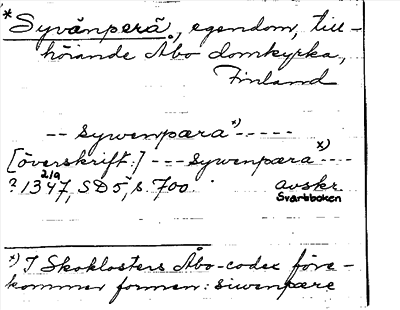 *Syvänperä, egendom, till-
hörande Åbo domkyrka,
Finland
-- sywenpæra *) -----
[överskrift:] --- sywenpæra *) ----
2/9
? 1347, SD 5, s. 700. avskr.
Svartboken
*) I Skoklosters Åbo-codex före-
kommer formen: siwenpære